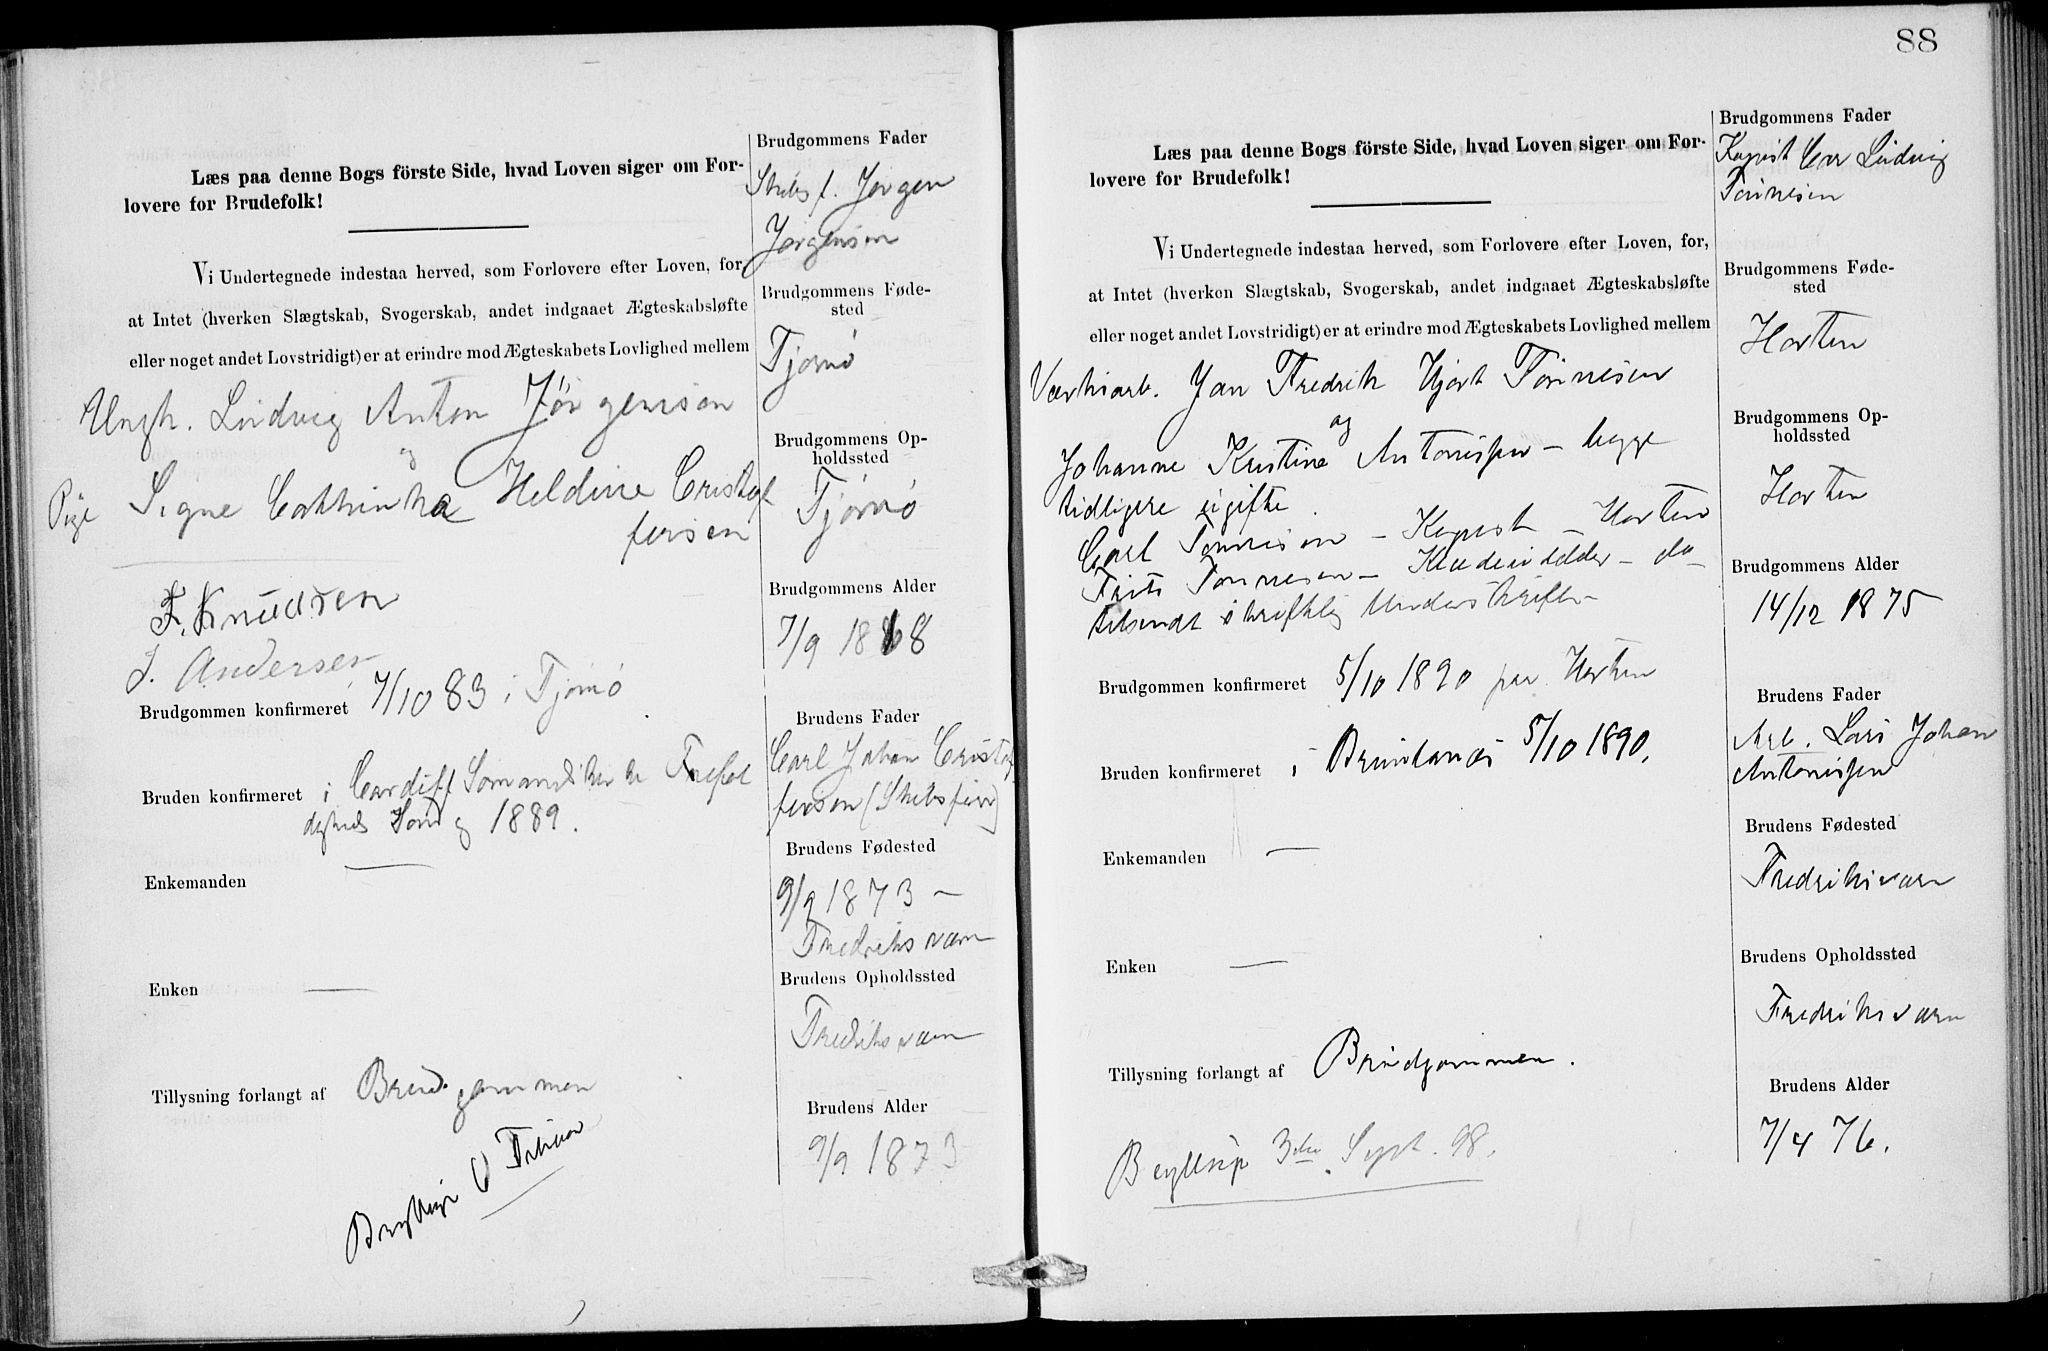 Læs paa denne Bogs förste Side, hvad Loven siger om For-
lovere for Brudefolk!
Vi Undertegnede indestaa herved, som Forlovere efter Loven, for,
at Intet (hverken Slægtskab, Svogerskab, andet indgaaet Ægteskabsløfte
eller noget andet Lovstridigt) er at erindre mod Ægteskabets Lovlighed mellem
Ungk. Ludvig Anton Jörgensen
og
Pige Signe Cathinka Heldine Cristof
fersen
F. Knudsen
J. Andersen
Brudgommen konfirmeret 7/10 83 i Tjømø
Bruden konfirmeret i Cardiff
1889.
Enkemanden —
Enken —
Tillysning forlangt af Brudgommen
Bryllup
Brudgommens Fader
Skibsf. Jørgen
Jørgensen
Brudgommens Føde-
sted
Tjømø
Brudgommens Op-
holdssted
Tjømø
Brudgommens Alder
7/9 1868
Brudens Fader
Carl Johan Cristof
fersen (Skibsfører)
Brudens Fødested
9/9 1873 —
Fredriksværn
Brudens Opholdssted
Fredriksværn
Brudens Alder
9/9 1873
88
Læs paa denne Bogs förste Side, hvad Loven siger om For-
lovere for Brudefolk!
Vi Undertegnede indestaa herved, som Forlovere efter Loven, for,
at Intet (hverken Slægtskab, Svogerskab, andet indgaaet Ægteskabsløfte
eller noget andet Lovstridigt) er at erindre mod Ægteskabets Lovlighed mellem
Værksarb. Jan Fredrik Hjort Tönnesen
og
Johanne Kristine Antonisen — begge
tidligere ugifte
Carl Tönnesen — Kopist — Horten
Frits Tönnesen — — do —
tilsendt skriftlig Underskrifter
Brudgommen konfirmeret 5/10 1890 paa Horten
Bruden konfirmeret i Brunlanes 5/10 1890.
Enkemanden —
Enken —
Tillysning forlangt af Brudgommen.
Bryllup 3die Sept. 98.
Brudgommens Fader
Kopist Carl Ludvig
Tönnesen
Brudgommens Føde-
sted
Horten
Brudgommens Op-
holdssted
Horten
Brudgommens Alder
14/12 1875
Brudens Fader
Arb. Lars Johan
Antonisen
Brudens Fødested
Fredriksværn
Brudens Opholdssted
Fredriksværn
Brudens Alder
7/4 76.